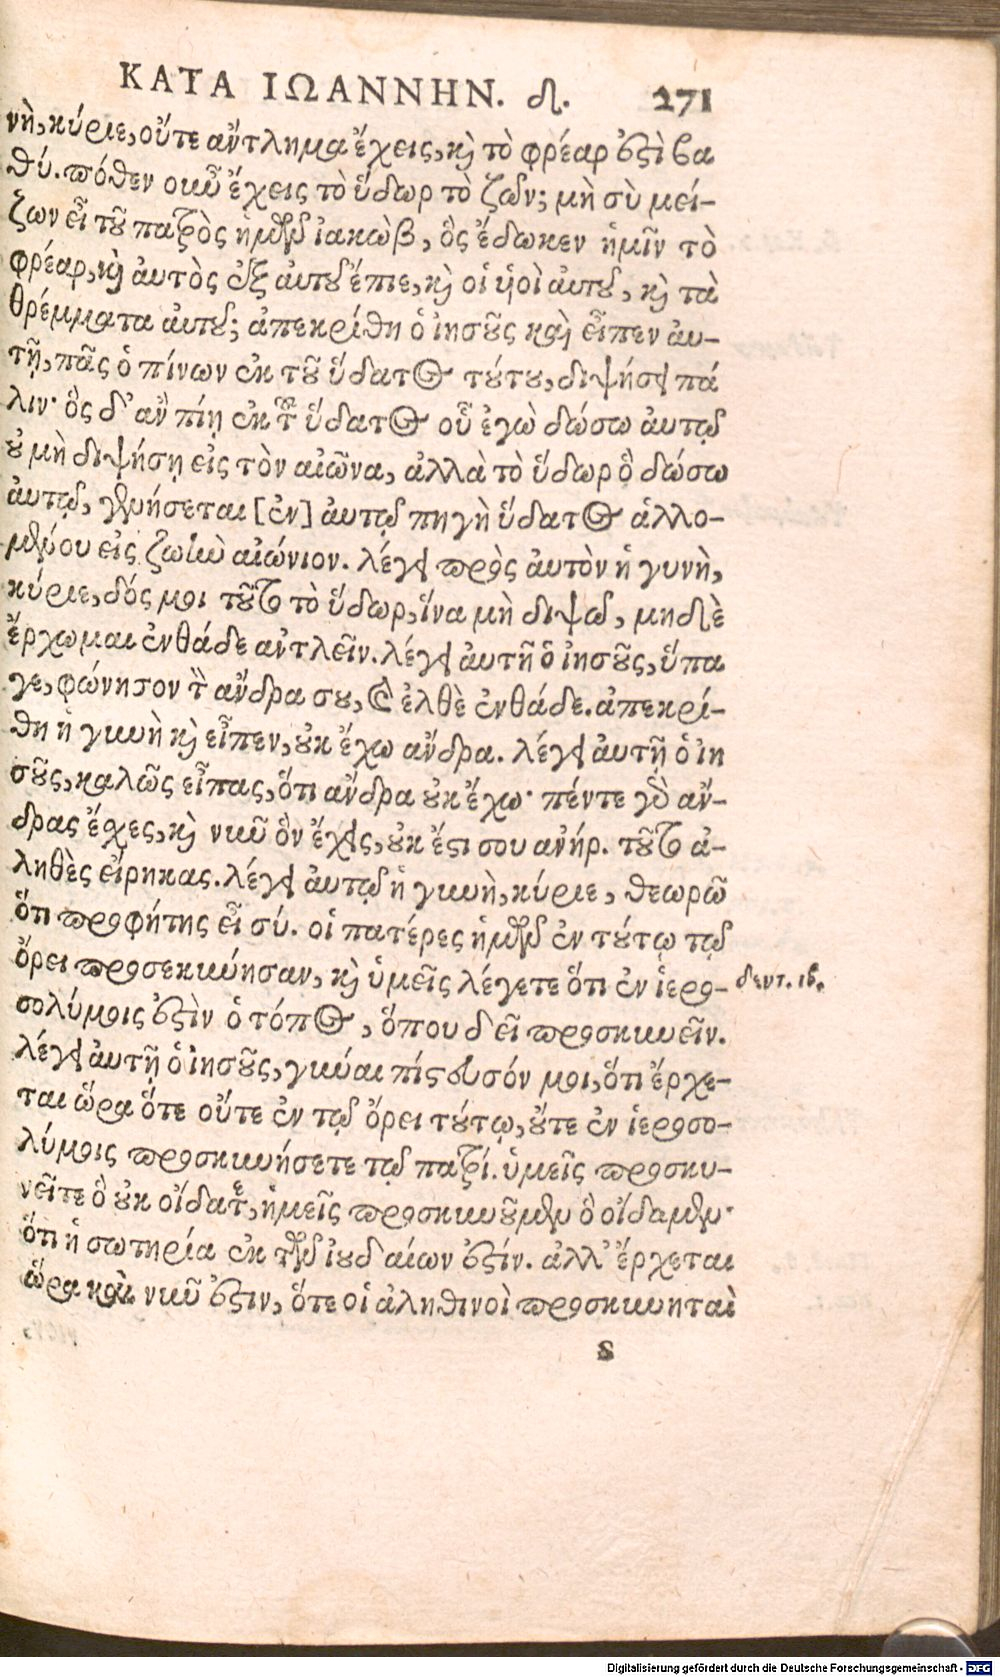 ΚΑΤΑ ΙΩΑΝΝΗΝ. δ. 271
νὴ, κύριε, οὔτε ἄντλημα ἔχεις, καὶ τὸ φρέαρ ἐστὶ βα
θύ. πόθεν οὖν ἔχεις τὸ ὕδωρ τὸ ζῶν; μὴ σὺ μεί-
ζων εἶ τοῦ πατρὸς ἡμῶν ἰακὼβ, ὃς ἔδωκεν ἡμῖν τὸ
φρέαρ, καὶ ἀυτὸς ἐξ ἀυτοῦ ἔπιε, καὶ οἱ ὑιοὶ ἀυτοῦ, καὶ τὰ
θρέμματα ἀυτοῦ; ἀπεκρίθη ὁ ἰησοῦς καὶ εἶπεν ἀυ-
τῇ, πᾶς ὁ πίνων ἐκ τοῦ ὕδατος τούτου, διψήσει πά
λιν· ὃς δ' ἂν πίῃ ἐκ τοῦ ὕδατος οὗ ἐγὼ δώσω ἀυτῷ
οὐ μὴ διψήσῃ εἰς τὸν αἰῶνα, ἀλλὰ τὸ ὕδωρ ὃ δώσω
ἀυτῷ, γενήσεται [ἐν] ἀυτῷ πηγὴ ὕδατος ἁλλο-
μένου εἰς ζωὴν αἰώνιον. λέγει πρὸς ἀυτὸν ἡ γυνὴ,
κύριε, δός μοι τοῦτο τὸ ὕδωρ, ἵνα μὴ διψῶ, μηδὲ
ἔρχωμαι ἐνθάδε ἀντλεῖν. λέγει ἀυτῇ ὁ ἰησοῦς, ὕπα
γε, φώνησον τὸν ἄνδρα σου, καὶ ἐλθὲ ἐνθάδε. ἀπεκρί-
θη ἡ γυνὴ καὶ εἶπεν, οὐκ ἔχω ἄνδρα. λέγει ἀυτῇ ὁ ἰη
σοῦς, καλῶς εἶπας, ὅτι ἄνδρα οὐκ ἔχω· πέντε γὰρ ἄν-
δρας ἔσχες, καὶ νῦν ὃν ἔχεις, οὐκ ἔστι σου ἀνήρ. τοῦτο ἀ-
ληθὲς εἴρηκας. λέγει ἀυτῷ ἡ γυνὴ, κύριε, θεωρῶ
ὅτι προφήτης εἶ σύ. οἱ πατέρες ἡμῶν ἐν τούτῳ τῷ
ὄρει προσεκύνησαν, καὶ ὑμεῖς λέγετε ὅτι ἐν ἱερο- δευτ. ιβ.
σολύμοις ἐστὶν ὁ τόπος, ὅπου δεῖ προσκυνεῖν.
λέγει ἀυτῇ ὁ ἰησοῦς, γύναι πίστευσόν μοι, ὅτι ἔρχε-
ται ὥρα ὅτε οὔτε ἐν τῷ ὄρει τούτῳ, οὔτε ἐν ἱεροσο-
λύμοις προσκυνήσετε τῷ πατρί. ὑμεῖς προσκυ-
νεῖτε ὃ οὐκ οἴδατε, ἡμεῖς προσκυνοῦμεν ὃ οἴδαμεν·
ὅτι ἡ σωτηρία ἐκ τῶν ἰουδαίων ἐστίν. ἀλλ' ἔρχεται
ὥρα καὶ νῦν ἐστιν, ὅτε οἱ ἀληθινοὶ προσκυνηταὶ
S
Digitalisierung gefördert durch die Deutsche Forschungsgemeinschaft - DFG